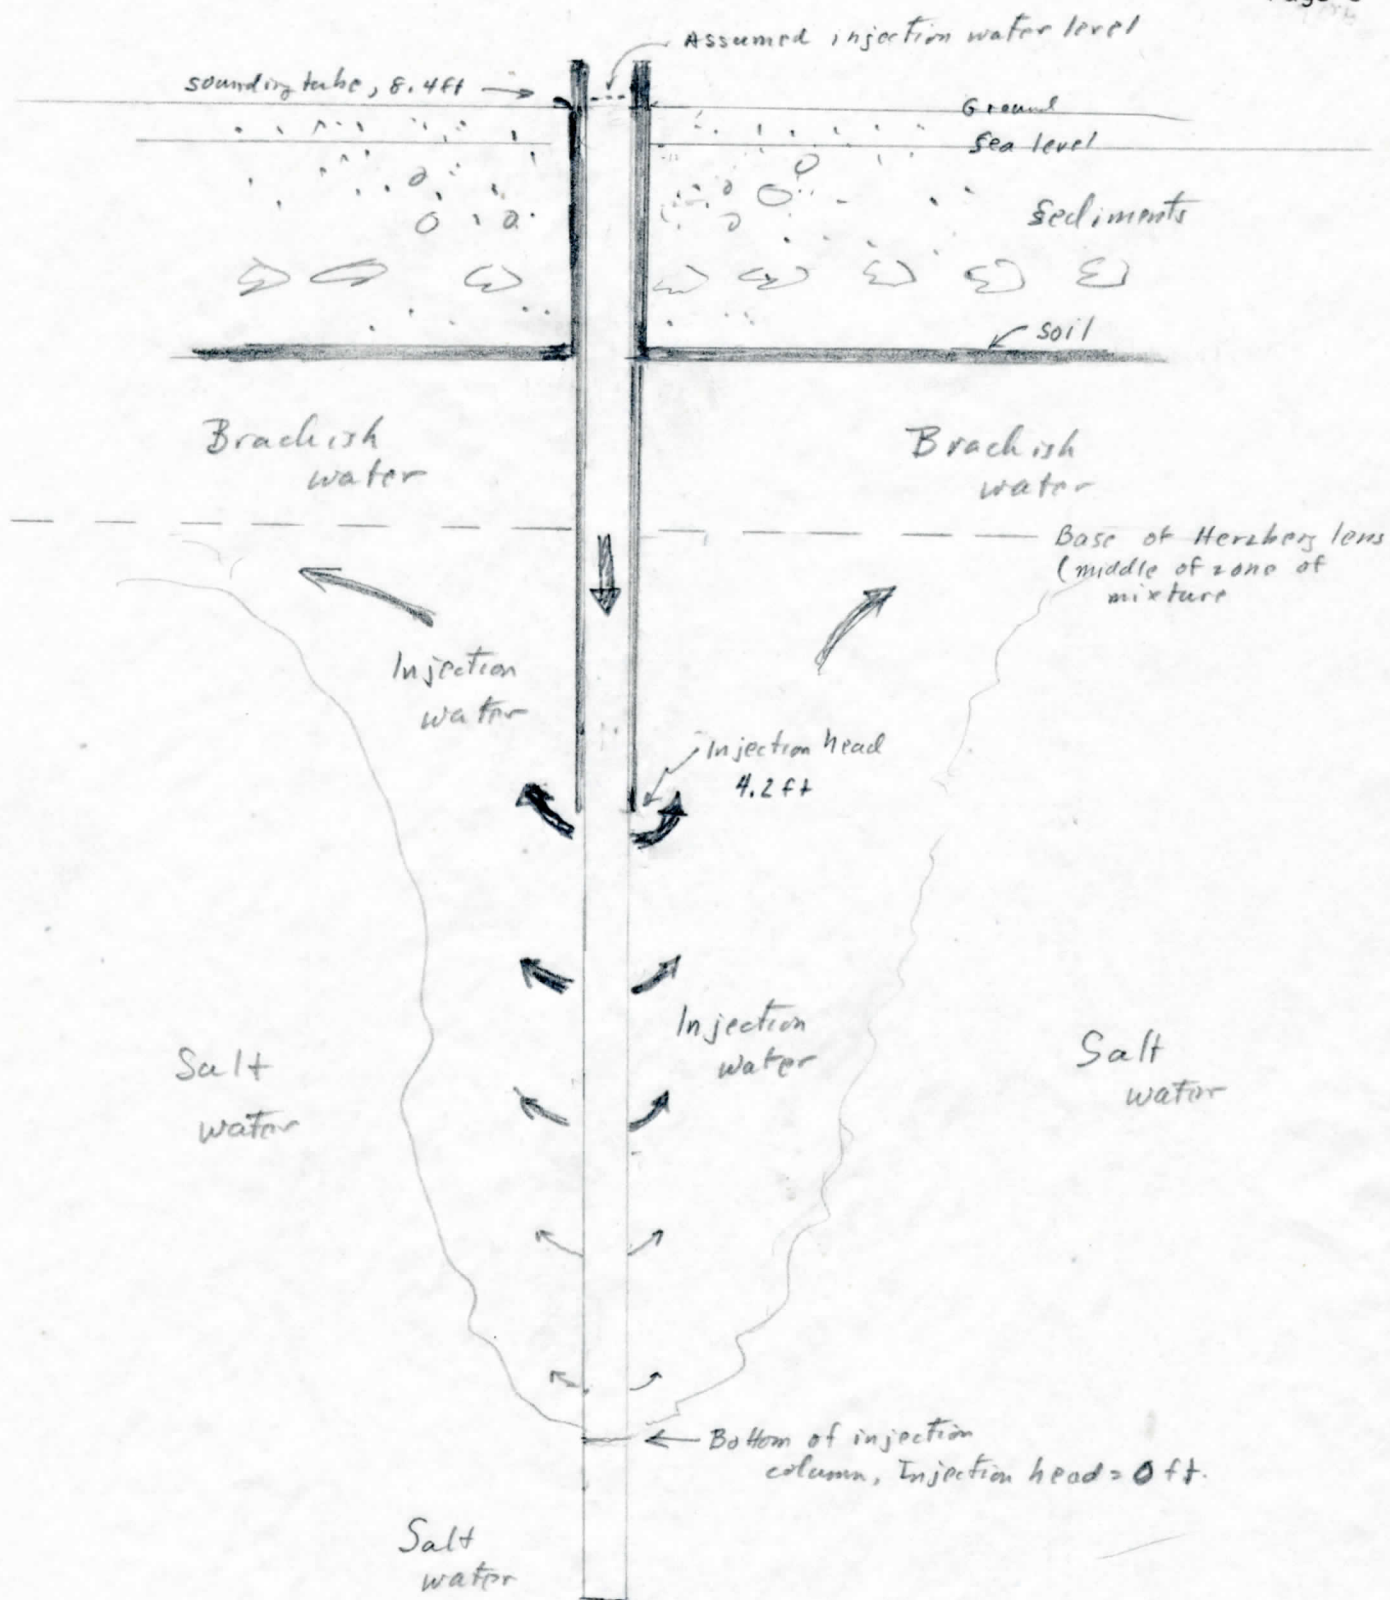 Page
Assumed injection water level
sounding tube, 8.4ft
Ground
Sea level
Sediments
soil
Brackish
water
Brackish
water
Base of Herzberg lens
(middle of zone of
mixture
Injection
water
Injection head
4.2ft
Injection
water
Salt
water
Salt
water
Bottom of injection
column, Injection head = 0 ft.
Salt
water